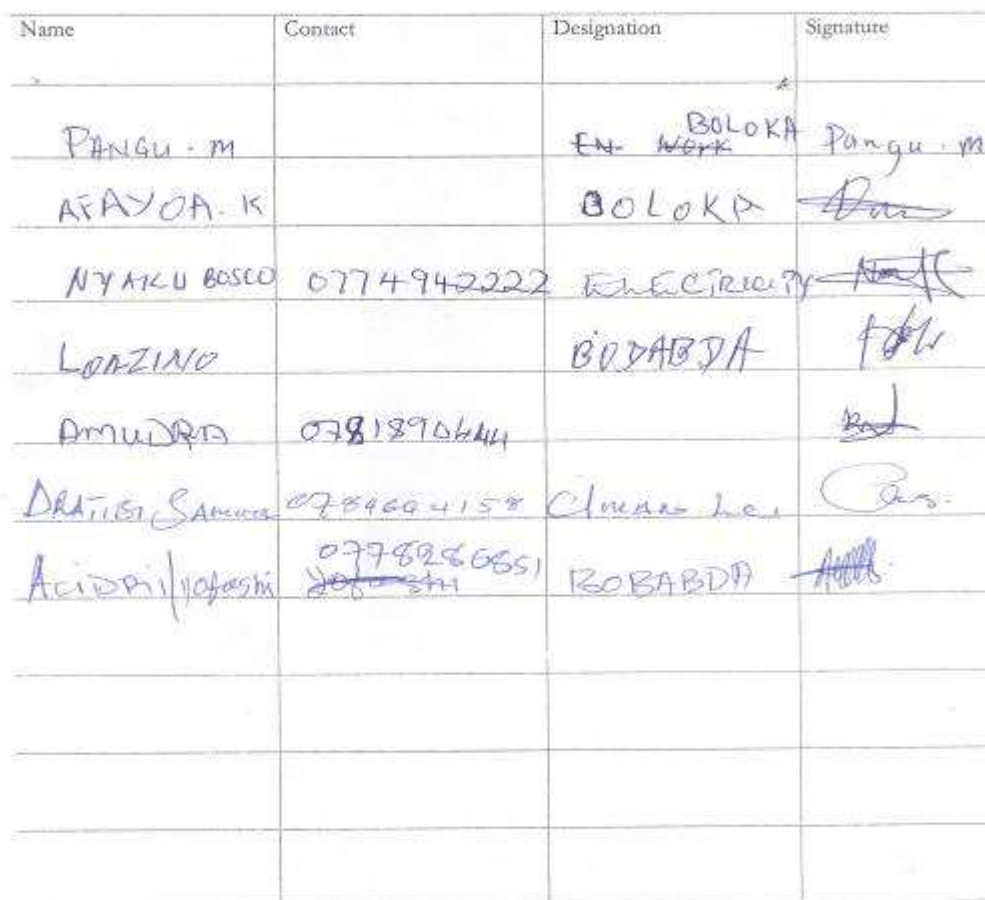 Name Contact Designation Signature
PANGU. M BOLOKA Pangu. M
AFAYOA. K BOLOKA
NYAKU BOSCO 0774942222 ELECTRICITY
LOAZINO BODABDA
AMUDRA
DRATIBI 0784664158
ACIDRI Yofeshi 0778286851 BOBABDA